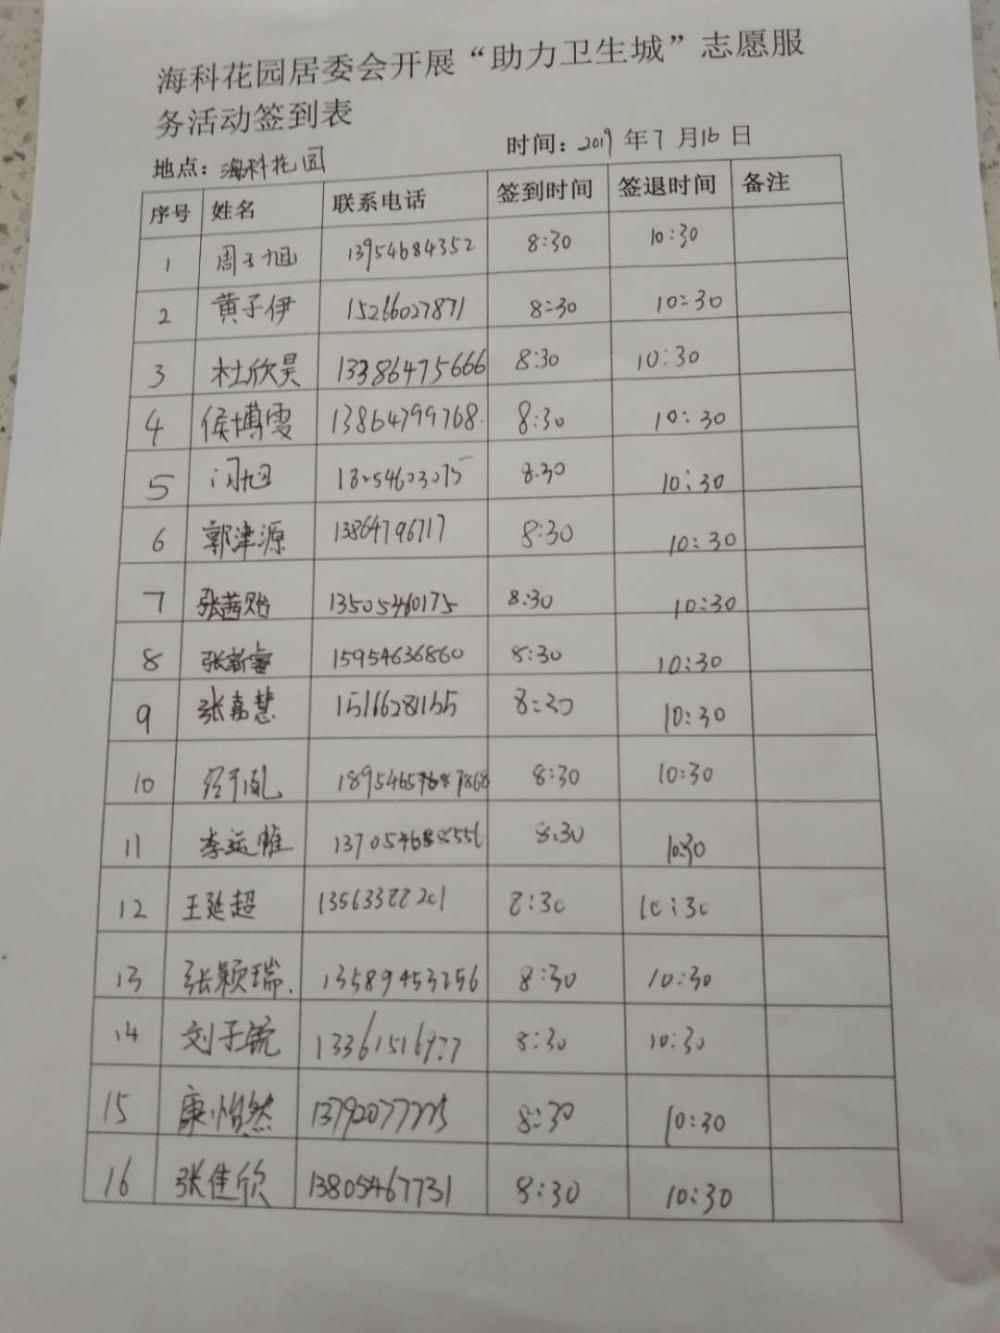 海科花园居委会开展“助力卫生城”志愿服
务活动签到表
地点：海科花园 时间：2019年7月16日
序号 姓名 联系电话 签到时间 签退时间 备注
1 周子旭 13954684352 8:30 10:30
2 黄子伊 15266027871 8:30 10:30
3 杜欣昊 13386475666 8:30 10:30
4 侯博雯 13864799768 8:30 10:30
5 闫旭 18254603075 8:30 10:30
6 郭津源 13864796717 8:30 10:30
7 张茜贻 13505460175 8:30 10:30
8 张新睿 15954636860 8:30 10:30
9 张嘉慧 15166281155 8:30 10:30
10 8:30 10:30
11 李运雎 8:30 10:30
12 王延超 13563322201 8:30 10:30
13 张颖瑞. 13589453256 8:30 10:30
14 刘子毓 13361516927 8:30 10:30
15 康怡然 13792077225 8:30 10:30
16 张佳欣 13805467731 8:30 10:30